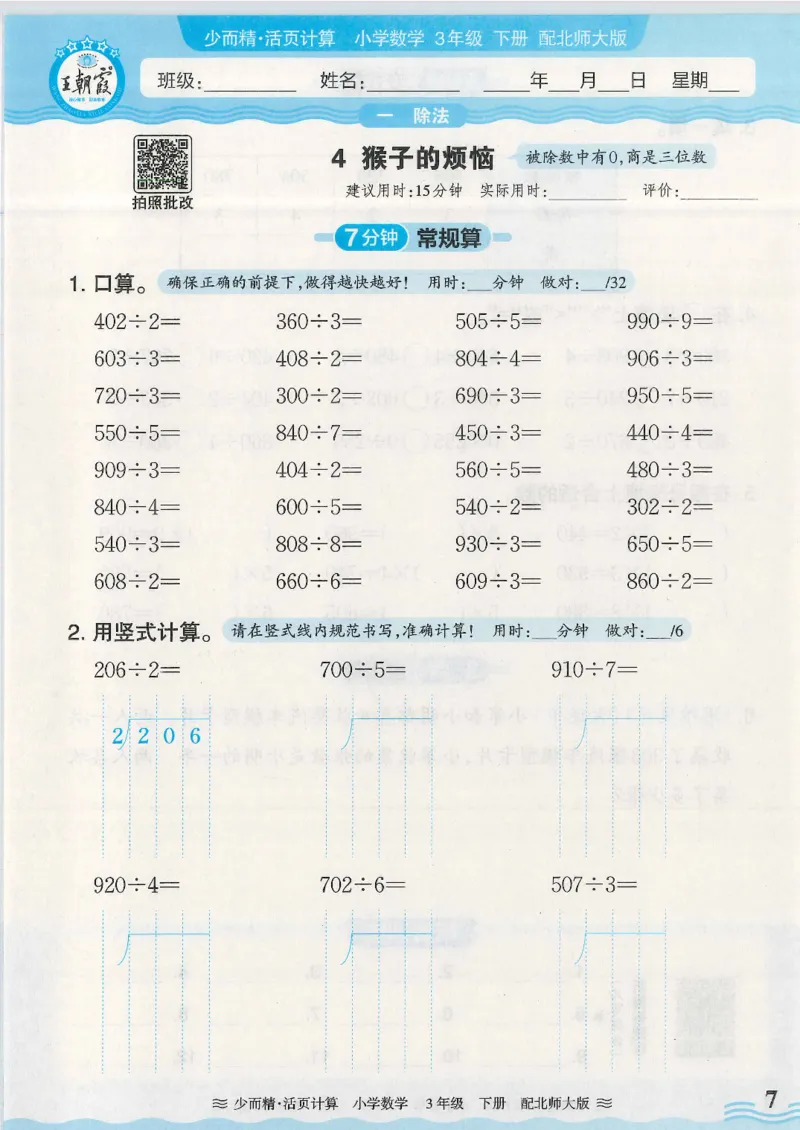 少而精·活页计算 小学数学 3年级 下册 配北师大版
王朝霞
班级:________ 姓名:________ ____年___月___日 星期___
一 除法
4 猴子的烦恼 被除数中有0,商是三位数
拍照批改
建议用时:15分钟 实际用时:________ 评价:________
7分钟 常规算
1. 口算。 确保正确的前提下,做得越快越好! 用时:___分钟 做对:___/32
402÷2= 360÷3= 505÷5= 990÷9=
603÷3= 408÷2= 804÷4= 906÷3=
720÷3= 300÷2= 690÷3= 950÷5=
550÷5= 840÷7= 450÷3= 440÷4=
909÷3= 404÷2= 560÷5= 480÷3=
840÷4= 600÷5= 540÷2= 302÷2=
540÷3= 808÷8= 930÷3= 650÷5=
608÷2= 660÷6= 609÷3= 860÷2=
2. 用竖式计算。 请在竖式线内规范书写,准确计算! 用时:___分钟 做对:___/6
206÷2= 700÷5= 910÷7=
2 2 0 6
920÷4= 702÷6= 507÷3=
少而精·活页计算 小学数学 3年级 下册 配北师大版
7